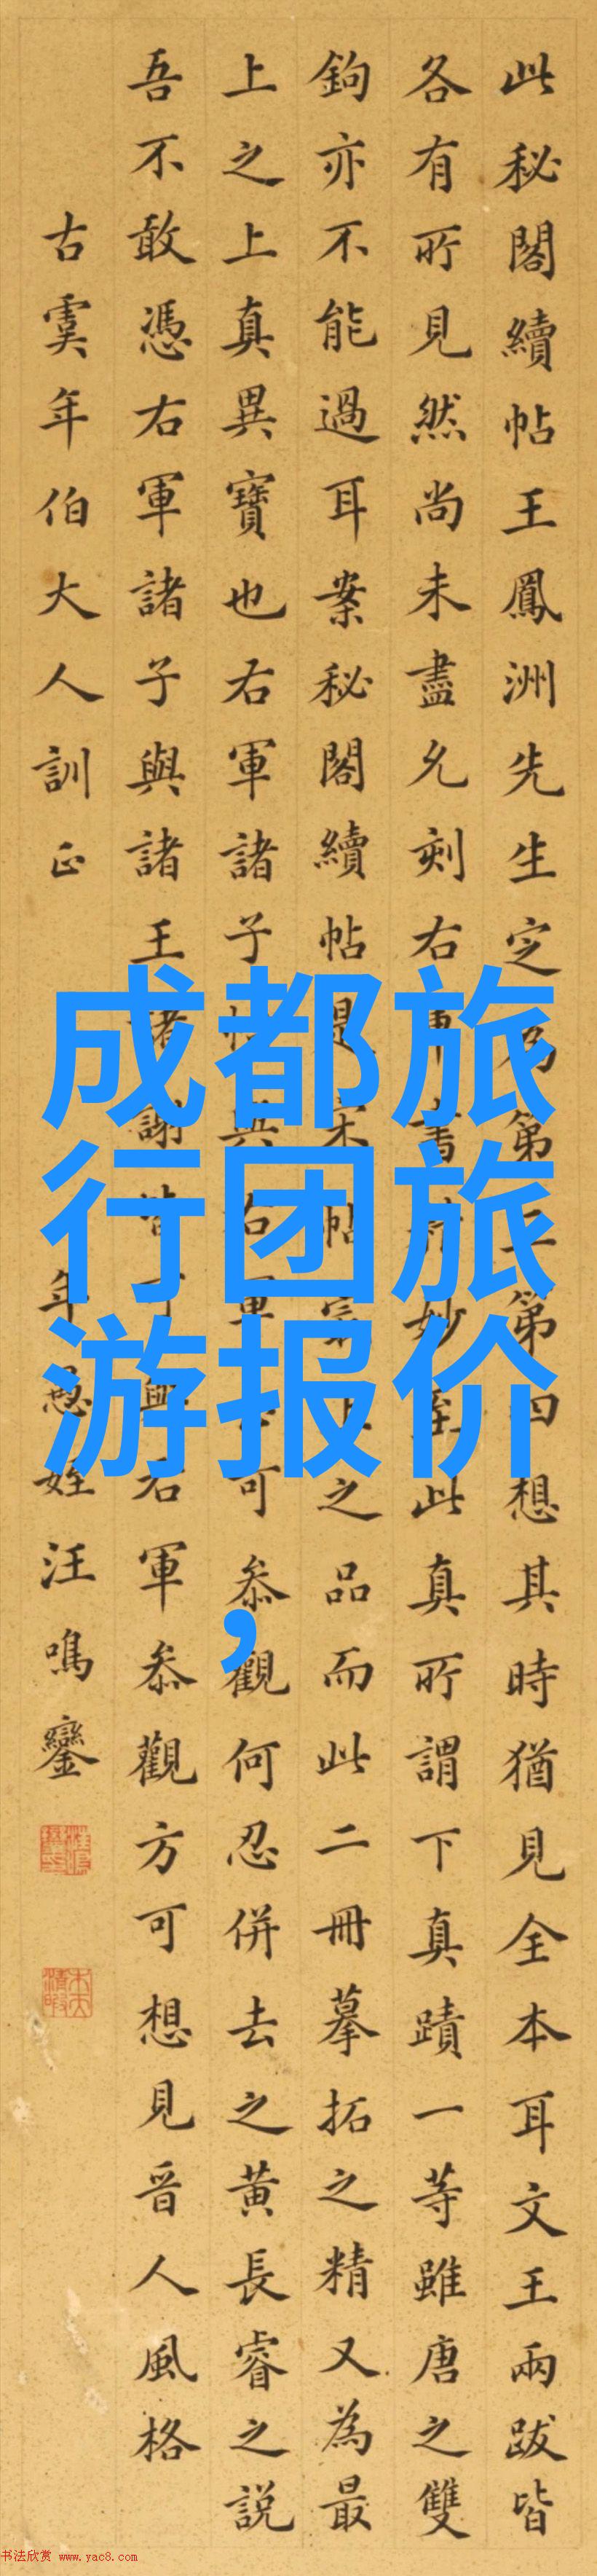 此秘閣續帖王鳳洲先生定為第二第四想其時猶見全本耳文王兩跋皆
各有所見然尚未盡允刻右軍書精妙至此真所謂下真蹟一等雖唐之雙
鉤亦不能過耳案秘閣續帖是宋帖最上之品而此二冊摹拓之精又為最
上之上真異寶也右軍諸子皆與右軍可叅觀何忍併去之黄長睿之説
吾不敢憑右軍諸子與諸王諸謝皆可與右軍叅觀方可想見晋人風格
古虞年伯大人訓正
年愚姪汪鳴鑾
成都旅
行团旅
游报价
,
书法欣赏 www.yac8.com